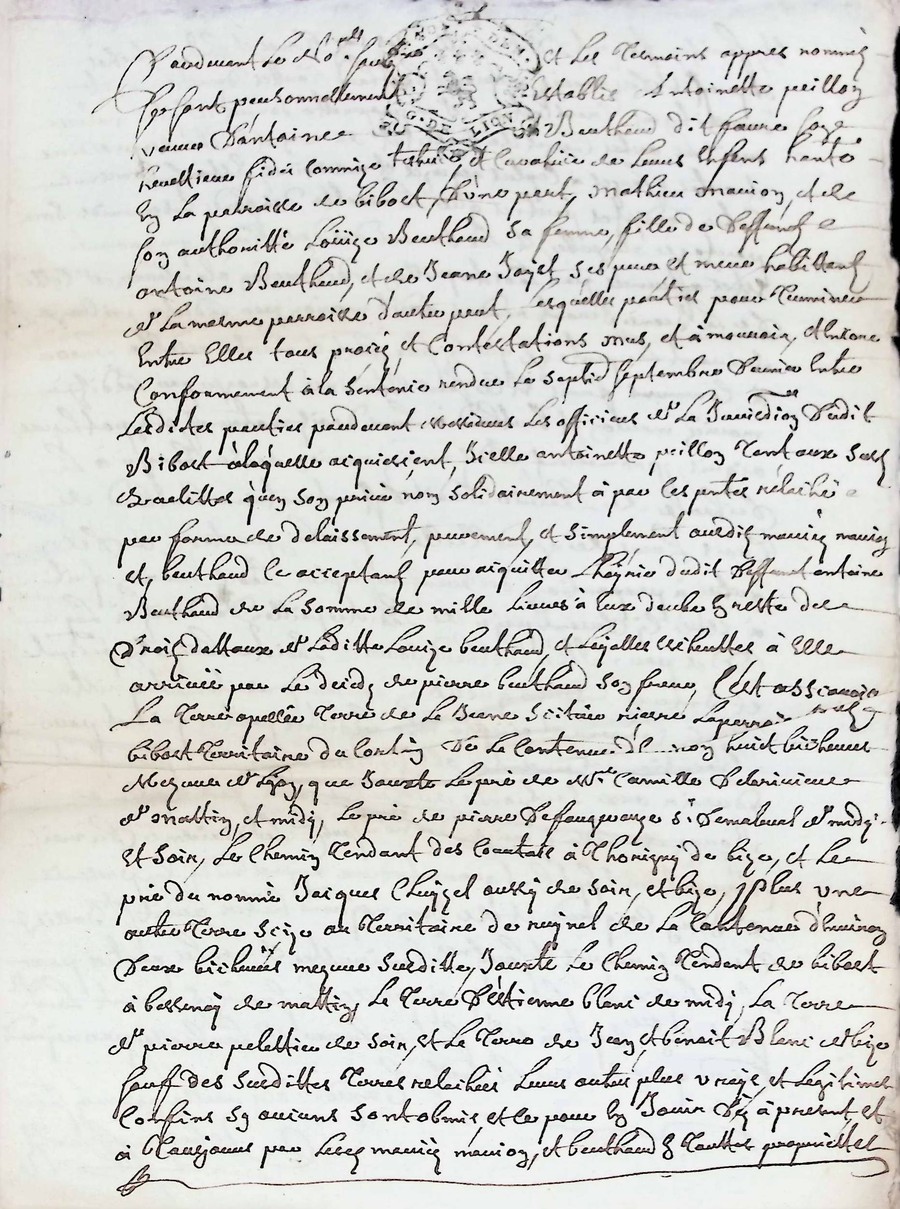 Pardevant le No.re royal et les temoins appres nommés
se sont personnellement establis Antoinette peillon
veuve D'antoine Berthaud dit faure sage
heretiere fidei commize tutrice, et Curatrice de leurs enfens habite
en la perroisse de bibost, D'une pert, mathieu maurion, et de
son authoritté Loüize Berthaud sa femme, fille de Deffunts
antoine Berthaud, et de Jeane Jayet ses pere et mere habittants
de La mesme perroisse d'autre pert, Lesquelles parties pour terminer
Entre Elles tous procès, et Contestations mus, et à mouvoir, Et encore
Conformement à la Sentence rendue Le Septie Septembre Dernier Entre
Lesdites parties pardevant messieurs Les officiers de La Jurisdion Dudit
Bibost à laquelle aiquiesient, Icelle antoinette peillon tant aux susd
qualittes qu'en son privé nom solidairement à par ces pntes relaché
par forme de delaissement, purement, et simplement ausdit mariés maurion
et, berthaud ce acceptant pour aiquitter L'hoyrie dudit Deffunt antoine
Berthaud de La somme de mille Livres à eux deube en reste de
Droits dottaux de Laditte Louize berthaud, et Leyalles escheuttes à Elle
arrivée par Le deceds de pierre berthaud son frere, C'est assavoir
La Terre apellée Terre de Le Jeane Scituée riere Laperroisse
bibost Territoire du Corbin De Le Contenue D' huict bicherees
Mezure de Lyon, que Jouxte Le pré de Mre Camille Dericieux
de Mattin, et midy, Le pré de pierre Deffargues Sr Demalaval de midy
et Soir, Le Chemin Tendant des Courtais à Thorigny de bize, et Le
pré du nommé Jacques Chuyzel aussy de Soir, et bize, Plus une
autre Terre Scize au Territoire de ruynel de La Contenue d'huiron
Deux bicherées mezure Surditte, Jouxte Le Chemin Tendant de bibost
à bessenay de mattin, Le Terre D'Estienne blanc de midy, La Terre
de pierre pelettier de Soir, et Le Terre de Jean, et benoit Blanc de bize
sauf des Surdittes Terres relachées Leurs autres plus vrays, et Legitimes
Confins Sy aucuns Sont obmis, et ce pour en Jouir Dès à present, et
à Tousjours par Lesd mariés maurion, et berthaud en Touttes proprietes